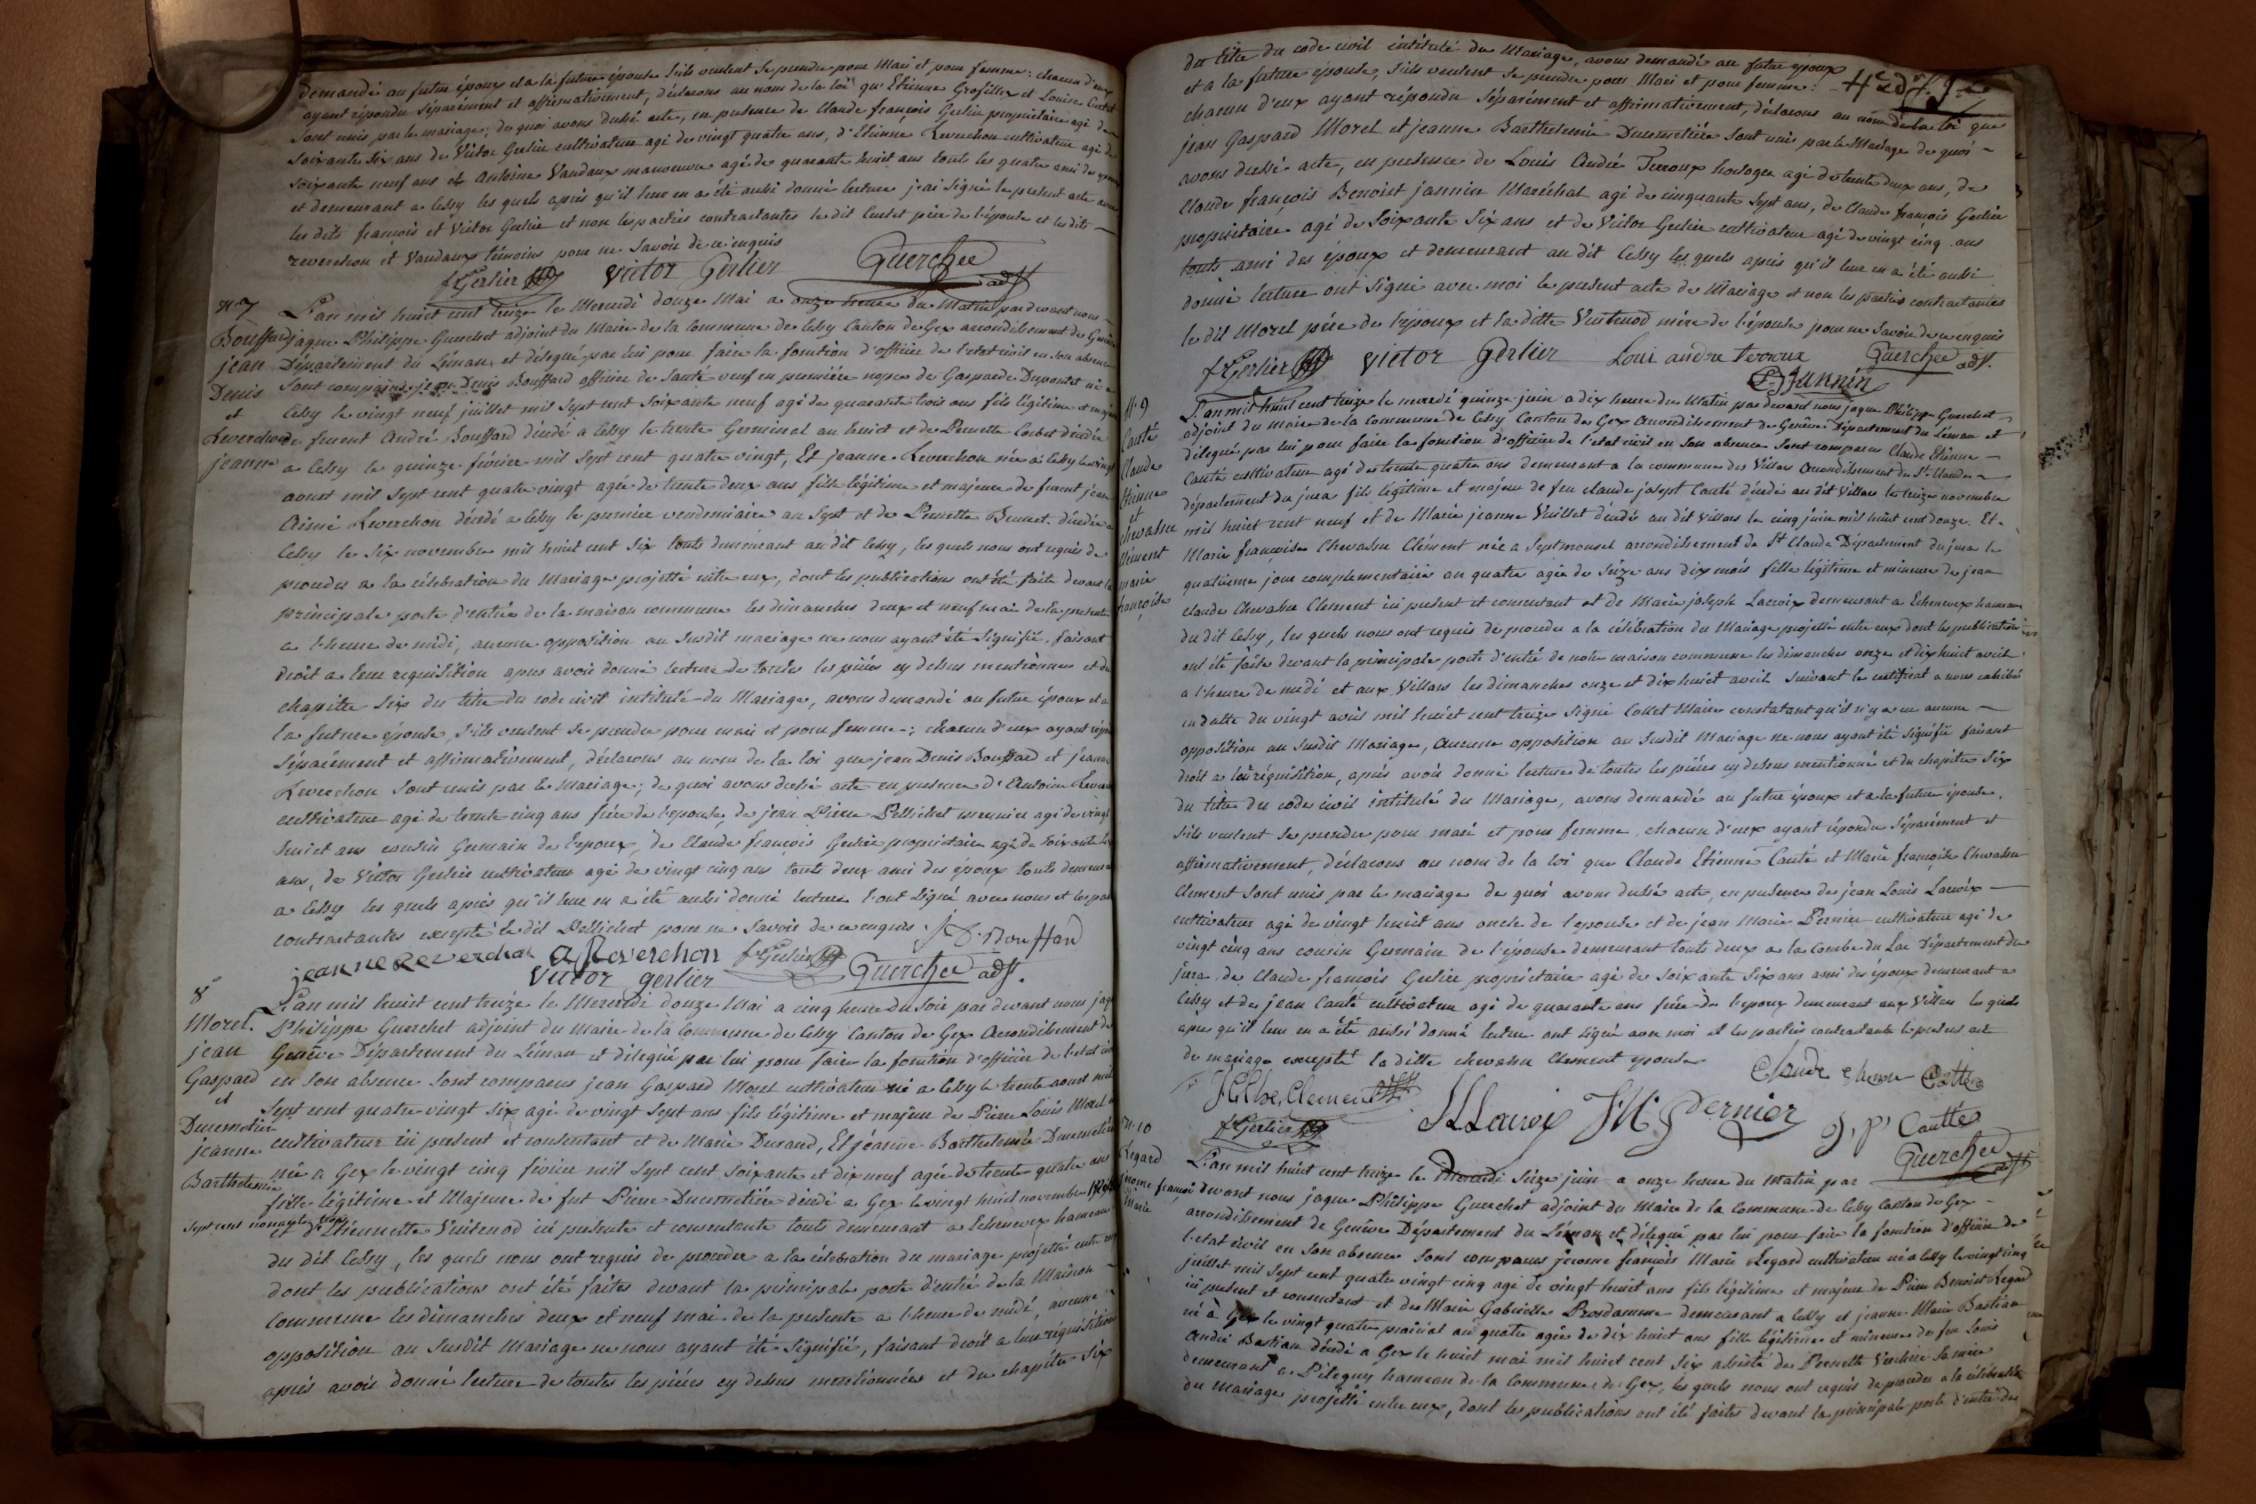 demandé au futur époux et a la future épouse s'ils veulent se prendre pour Mari et pour femme: chacun d'eux
ayant répondu séparément et affirmativement, déclarons au nom de la loi qu'Etienne Grosfillex et Louise
sont unis par le mariage; de quoi avons dressé acte, en presence de Claude françois Gerlier propriétaire agé de
soixante six ans de Victor Gerlier cultivateur agé de vingt quatre ans, d'Etienne Reverchon cultivateur agé de
soixante neuf ans et Antoine Vandaux manoeuvre agé de quarante huit ans touts les quatre ami des
et demeurant a Cessy les quels après qu'il leur en a été aussi donné lecture j'ai signé le present acte avec
les dits françois et Victor Gerlier et non les parties contractantes le dit père de l'épouse et les dits
reverchon et Vandaux témoins pour ne savoir de ce enquis
f Gerlier Victor Gerlier Guerchet adjt
n° 7
Bouffard
jean
Denis
et
Reverchon
jeanne
L'an mil huit cent treize le Mercredi douze Mai a onze heure du Matin par devant nous
jaque Philippe Guerchet adjoint du Maire de la Commune de Cessy Canton de Gex arrondissement de Genève
Département du Léman et délégué par lui pour faire la fonction d'officier de l'etat civil en son absence
sont comparus jean Denis Bouffard officier de santé veuf en première nopce de Gasparde Dupontet né a
Cessy le vingt neuf juillet mil sept cent soixante neuf agé de quarante trois ans fils légitime et majeur
de feu André Bouffard décédé a Cessy le trente Germinal an huit et de Pernette décédée
a Cessy le quinze février mil sept cent quatre vingt, Et jeanne Reverchon née a Cessy le vingt
aoust mil sept cent quatre vingt agée de trente deux ans fille légitime et majeure de feu jean
Aimé Reverchon décédé a Cessy le premier vendemiaire an sept et de Pernette décédée a
Cessy le six novembre mil huit cent six touts demeurant au dit Cessy, les quels nous ont requis de
proceder a la célébration du Mariage projetté entre eux, dont les publications ont été faite devant la
principale porte d'entrée de la maison commune les dimanches deux et neuf mai de la presente
a l'heure de midi, aucune opposition au susdit mariage ne nous ayant été signifié, faisant
droit a leur requisition apres avoir donné lecture de toutes les pièces cy dessus mentionnées et du
chapitre six du titre du code civil intitulé du Mariage, avons demandé au futur époux et a
la future épouse, s'ils veulent se prendre pour mari et pour femme; chacun d'eux ayant répondu
séparément et affirmativement, déclarons au nom de la loi que jean Denis Bouffard et jeanne
Reverchon sont unis par le Mariage; de quoi avons dressé acte en presence d'Antoine Reverchon
cultivateur agé de trente cinq ans frère de l'epouse, de jean Pierre Pellichet meunier agé de vingt
huit ans cousin Germain de l'epoux, de Claude françois Gerlier propriétaire agé de soixante six
ans, de Victor Gerlier cultivateur agé de vingt cinq ans touts deux ami des époux touts demeurant
a Cessy les quels après qu'il leur en a été aussi donné lecture l'ont signé avec nous et les parties
contractantes excepté le dit Pellichet pour ne savoir de ce enquis. J D Bouffard
jeanne Reverchon A Reverchon f Gerlier
Victor gerlier Guerchet adjt.
8
Morel
jean
Gaspard
et
Ducrmetière
jeanne
Barthelemie
L'an mil huit cent treize le Mercredi douze Mai a cinq heure du soir par devant nous jaque
Philippe Guerchet adjoint du maire de la Commune de Cessy Canton de Gex Arrondissement de
Genève Département du Léman et délégué par lui pour faire la fonction d'officier de l'etat civil
en son absence sont comparus jean Gaspard Morel cultivateur né a Cessy le trente aoust mil
sept cent quatre vingt six agé de vingt sept ans fils légitime et majeur de Pierre Louis Morel
cultivateur ici present et consentant et de Marie Durand, Et jeanne Barthelemie
née a Gex le vingt cinq février mil sept cent soixante et dix neuf agée de trente quatre ans
fille légitime et Majeure de fut Pierre décédé a Gex le vingt huit novembre
sept cent nonante trois et d'Etiennette Vuitenod ici presente et consentante touts demeurant a Echenevex hameau
du dit Cessy, les quels nous ont requis de proceder a la célébration du mariage projetté entre eux
dont les publications ont été faites devant la principale porte d'entrée de la Maison
commune les dimanches deux et neuf mai de la presente a l'heure de midi, aucune
opposition au susdit Mariage ne nous ayant été signifié, faisant droit a leur réquisition
après avoir donné lecture de toutes les pièces cy dessus mentionnées et du chapitre six
du titre du code civil intitulé du Mariage, avons demandé au futur époux
et a la future épouse, s'ils veulent se prendre pour Mari et pour femme:
chacun d'eux ayant répondu séparément et affirmativement, déclarons au nom de la loi que
jean Gaspard Morel et jeanne Barthelemie sont unis par le Mariage de quoi
avons dressé acte, en presence de Louis André Terroux horloger agé de trente deux ans, de
Claude françois Benoist jannin Maréchal agé de cinquante sept ans, de Claude françois Gerlier
propriétaire agé de soixante six ans et de Victor Gerlier cultivateur agé de vingt cinq ans
touts ami des époux et demeurant au dit Cessy les quels après qu'il leur en a été aussi
donné lecture ont signé avec moi le present acte de Mariage et non les parties contractantes
le dit Morel père de l'epoux et la ditte Vuitenod mère de l'épouse pour ne savoir de ce enquis
f Gerlier Victor Gerlier Loui andre terroux Guerchet adjt.
Jannin
N° 9
Cauté
Claude
Etienne
et
Chevassu
Clément
marie
françoise
L'an mil huit cent treize le mardi quinze juin a dix heure du Matin par devant nous jaque Philippe Guerchet
adjoint du maire de la Commune de Cessy Canton de Gex Arrondissement de Genève Département du Léman et
délégué par lui pour faire la fonction d'officier de l'etat civil en son absence sont comparus Claude Etienne
Cauté cultivateur agé de trente quatre ans demeurant a la commune des Villars Arrondissement de St Claude
département du jura fils légitime et majeur de feu claude joseph Cauté décédé au dit Villars le treize novembre
mil huit cent neuf et de Marie jeanne Vuillet décédée au dit Villars le cinq juin mil huit cent douze. Et
Marie françoise Chevassu Clément née a Septmoncel arrondissement de St Claude Département du jura le
quatrieme jour complementaire an quatre agée de seize ans dix mois fille légitime et mineure de jean
claude Chevassu Clement ici present et consentant et de Marie joseph Lacroix demeurant a Echenevex hameau
du dit Cessy, les quels nous ont requis de proceder a la célébration du Mariage projetté entre eux dont les publications
ont été faite devant la principale porte d'entrée de notre maison commune les dimanches onze et dix huit avril
a l'heure de midi et aux Villars les dimanches onze et dix huit avril suivant le certificat a nous exhibé
en datte du vingt avril mil huit cent treize signé Collet Maire constatant qu'il n'y a eu aucune
opposition au susdit Mariage, Aucune opposition au susdit Mariage ne nous ayant été signifié faisant
droit a leur réquisition, après avoir donné lecture de toutes les pièces cy dessus mentionné et du chapitre six
du titre du code civil intitulé du Mariage, avons demandé au futur époux et a la future épouse,
s'ils veulent se prendre pour mari et pour femme, chacun d'eux ayant répondu séparément et
affirmativement, déclarons au nom de la loi que Claude Etienne Cauté et Marie françoise Chevassu
Clement sont unis par le mariage de quoi avons dressé acte, en presence de jean Louis Lacroix
cultivateur agé de vingt huit ans oncle de l'epouse et de jean Marie Pernier cultivateur agé de
vingt cinq ans cousin Germain de l'épouse demeurant touts deux a la Combe du Lac Département du
jura de Claude françois Gerlier propriétaire agé de soixante six ans ami des époux demeurant a
Cessy et de jean Cauté cultivateur agé de quarante ans frère de l'epoux demeurant aux Villars les quels
apres qu'il leur en a été aussi donné lecture ont signé avec moi et les parties contractante le present acte
de mariage excepté la ditte chevassu Clement epouse
Claude etienne Cautte
Clement
f Gerlier J L Lacroix J M Pernier J. P. Cautté
Guerchet adjt
N° 10
Legard
jerome françoi
Marie
L'an mil huit cent treize le Mercredi seize juin a onze heure du matin par
devant nous jaque Philippe Guerchet adjoint du Maire de la Commune de Cessy Canton de Gex
arrondissement de Genève Département du Léman et délégué par lui pour faire la fonction d'officier de
l'etat civil en son absence sont comparus jerome françois Marie Legard cultivateur né a Cessy le vingt cinq
juillet mil sept cent quatre vingt cinq agé de vingt huit ans fils légitime et majeur de Pierre Benoist Legard
ici present et consentant et de Marie Gabrielle Prosdamme demeurant a Cessy et jeanne Marie Bastian
né à Gex le vingt quatre prairial an quatre agée de dix huit ans fille légitime et mineure de feu Louis
André Bastian décédé a Gex le huit mai mil huit cent six assisté de Pernette sa mère
demeurant a Pitegny hameau de la Commune de Gex, les quels nous ont requis de proceder a la célébration
du Mariage projetté entre eux, dont les publications ont été faites devant la principale porte d'entrée de